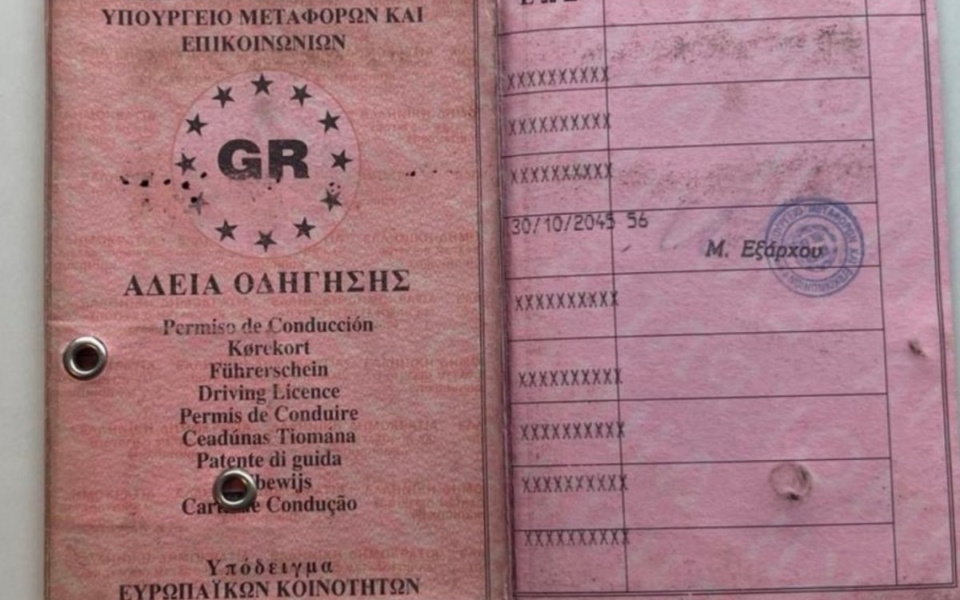 ΥΠΟΥΡΓΕΙΟ ΜΕΤΑΦΟΡΩΝ ΚΑΙ
ΕΠΙΚΟΙΝΩΝΙΩΝ
GR
ΑΔΕΙΑ ΟΔΗΓΗΣΗΣ
Permiso de Conducción
Kørekort
Führerschein
Driving Licence
Permis de Conduire
Ceadúnas Tiomána
Patente di guida
Condução
Υπόδειγμα
ΕΥΡΩΠΑΪΚΩΝ ΚΟΙΝΟΤΗΤΩΝ
XXXXXXXXXX
XXXXXXXXXX
XXXXXXXXXX
30/10/2045 56
Μ. Εξάρχου
XXXXXXXXXX
XXXXXXXXXX
XXXXXXXXXX
XXXXXXXXXX
XXXXXXXXXX